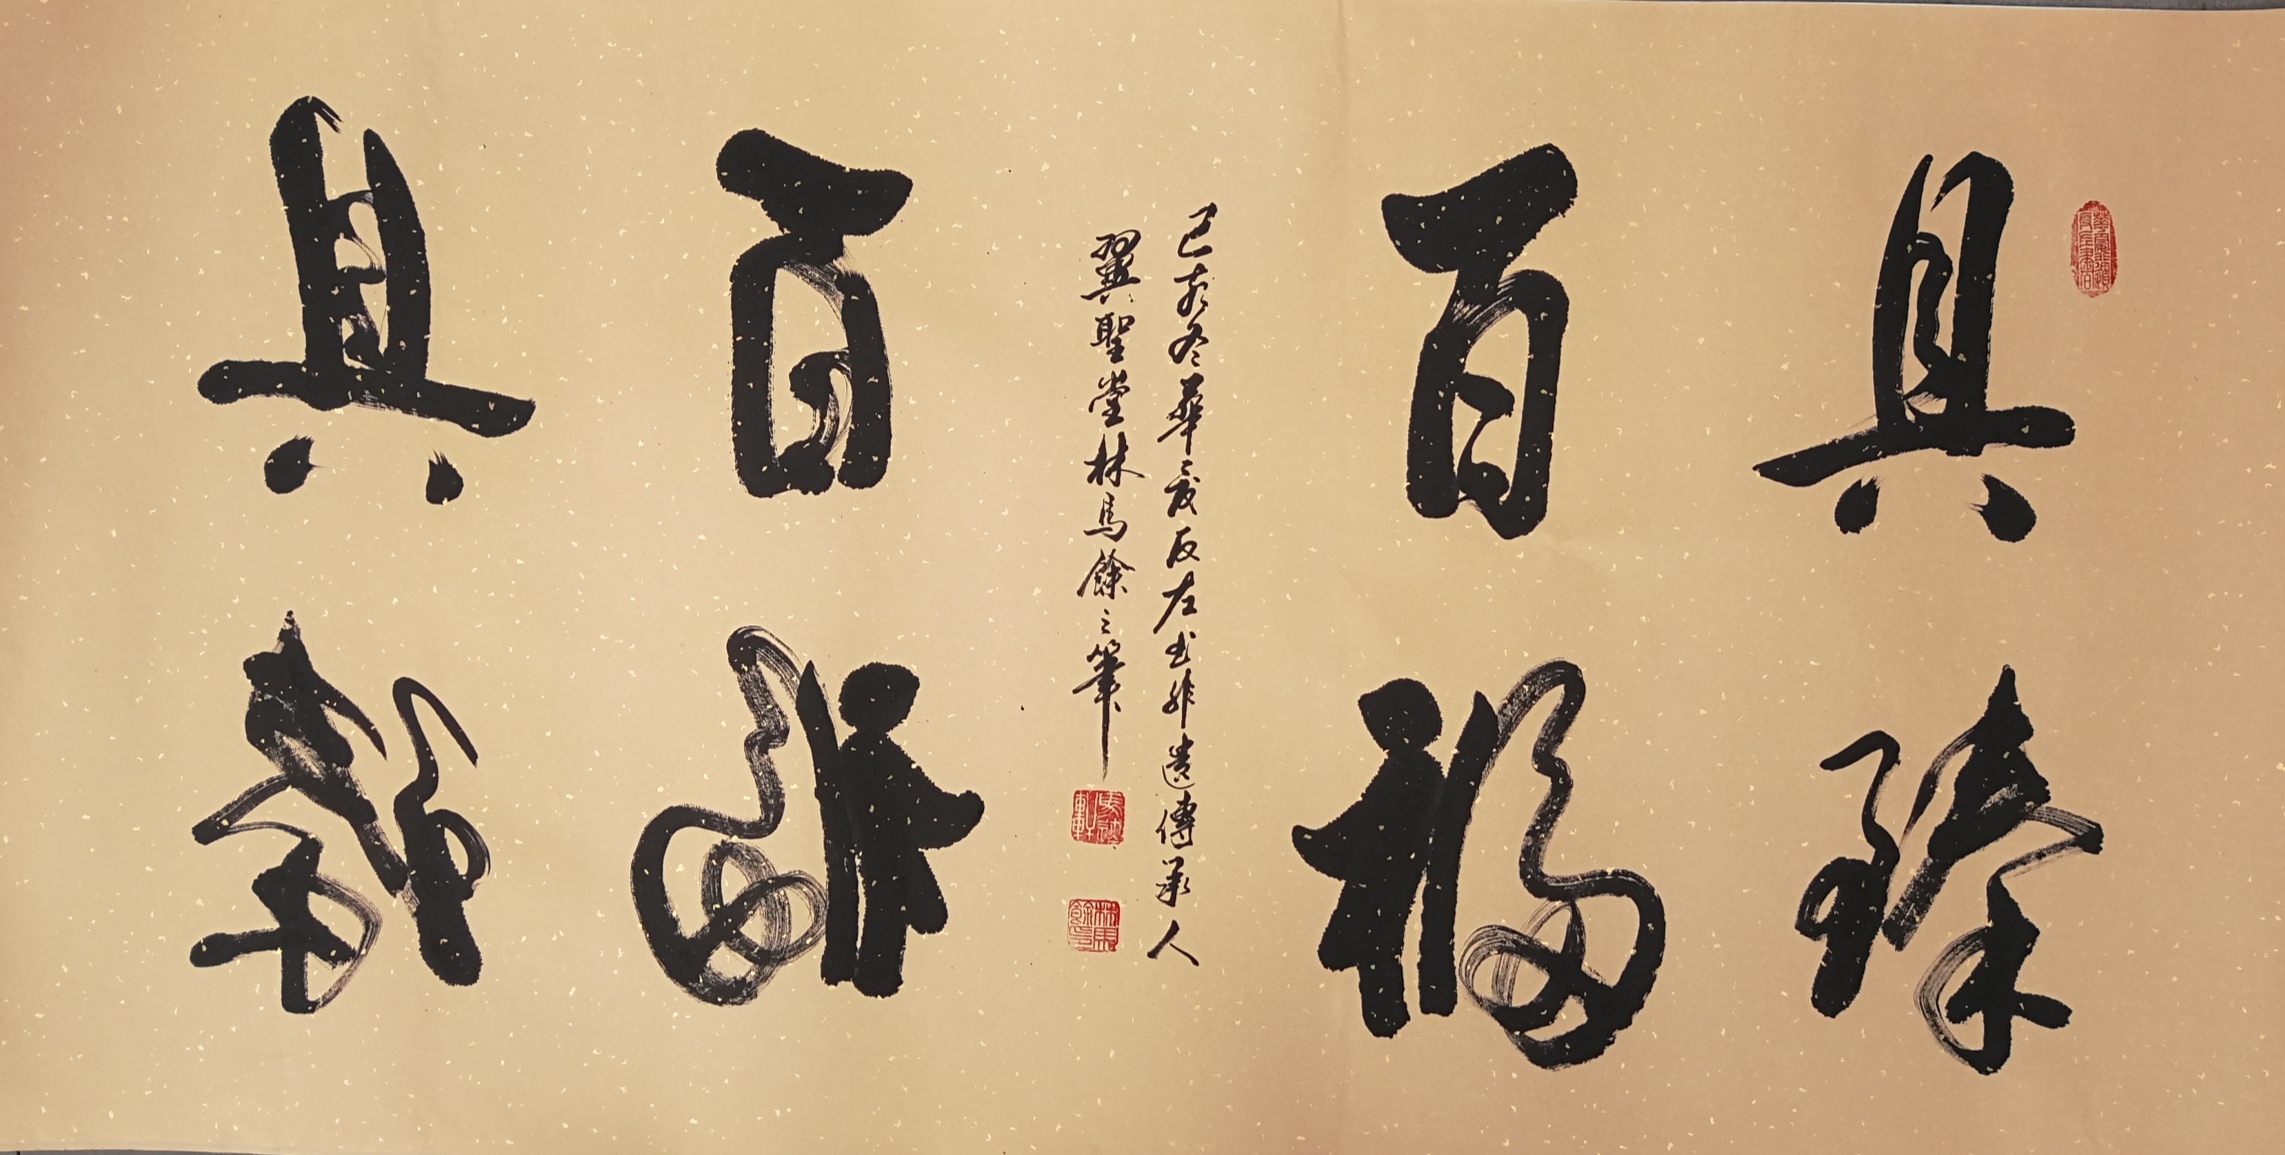 具臻
百福
己亥冬華夏反左书非遺傳承人
翼聖堂林馬餘之筆
百福
具臻